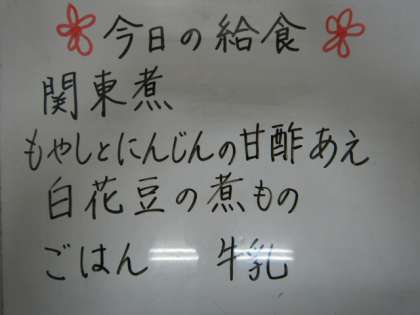 今日の給食
関東煮
もやしとにんじんの甘酢あえ
白花豆の煮もの
ごはん 牛乳